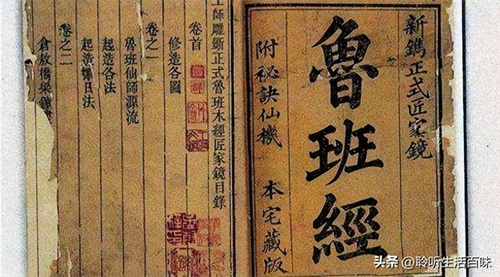 新鐫正式匠家鏡
魯班經
附秘訣仙機 本宅藏版
工師雕斲正式魯班木經匠家鏡目錄
卷首
修造各圖
卷之一
魯班仙師源流
起造各法
起造擇日法
卷之二
倉敖橋梁
头条 @聆听生活百味